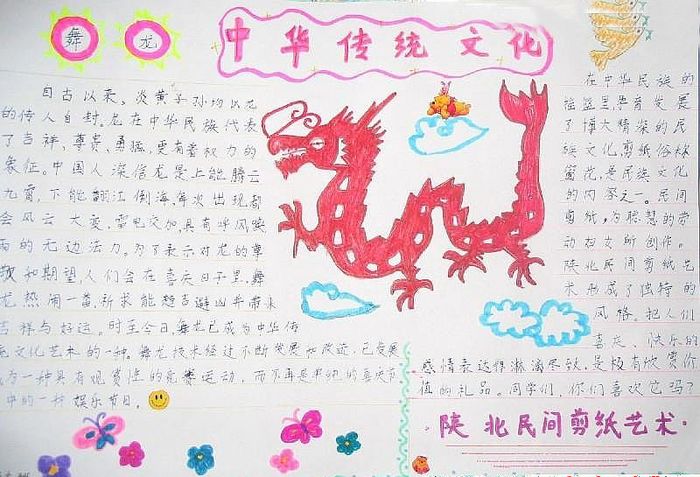 舞 龙
中华传统文化
自古以来,炎黄子孙均以龙
的传人自封。龙在中华民族代表
了吉祥、尊贵、勇猛,更有着权力的
象征。中国人深信龙是上能腾云
九霄,下能翻江倒海,每次出现都
会风云大变,雷电交加,具有呼风唤
雨的无边法力。为了表示对龙的尊
敬和期望,人们会在喜庆日子里,舞
龙热闹一番,祈求能趋吉避凶并带来
吉祥与好运。时至今日,舞龙已成为中华传
统文化艺术的一种。舞龙技术经过不断发展和改造,已发展
成为一种具有观赏性的竞赛运动,而不再是单纯的喜庆节
中的一种娱乐节目。
在中华民族的
摇篮里孕育发展
了博大精深的民
族文化,剪纸俗称
窗花,是民族文化
的内容之一。民间
剪纸,为聪慧的劳
动妇女所创作。
陕北民间剪纸艺
术形成了独特的
风格。把人们
喜庆、快乐的
感情表达得淋漓尽致,是极有欣赏价
值的礼品。同学们,你们喜欢它吗?
陕北民间剪纸艺术